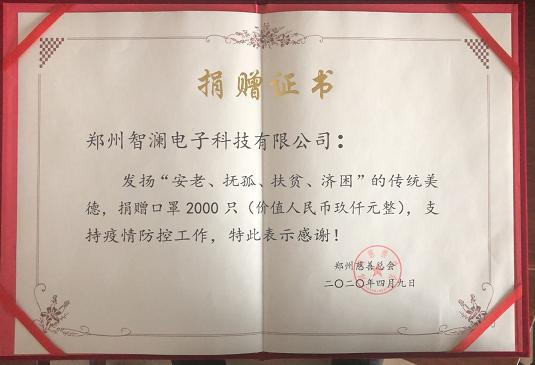 捐赠证书
郑州智澜电子科技有限公司：
发扬“安老、抚孤、扶贫、济困”的传统美
德，捐赠口罩2000只（价值人民币玖仟元整），支
持疫情防控工作，特此表示感谢！
郑州慈善总会
二〇二〇年四月九日